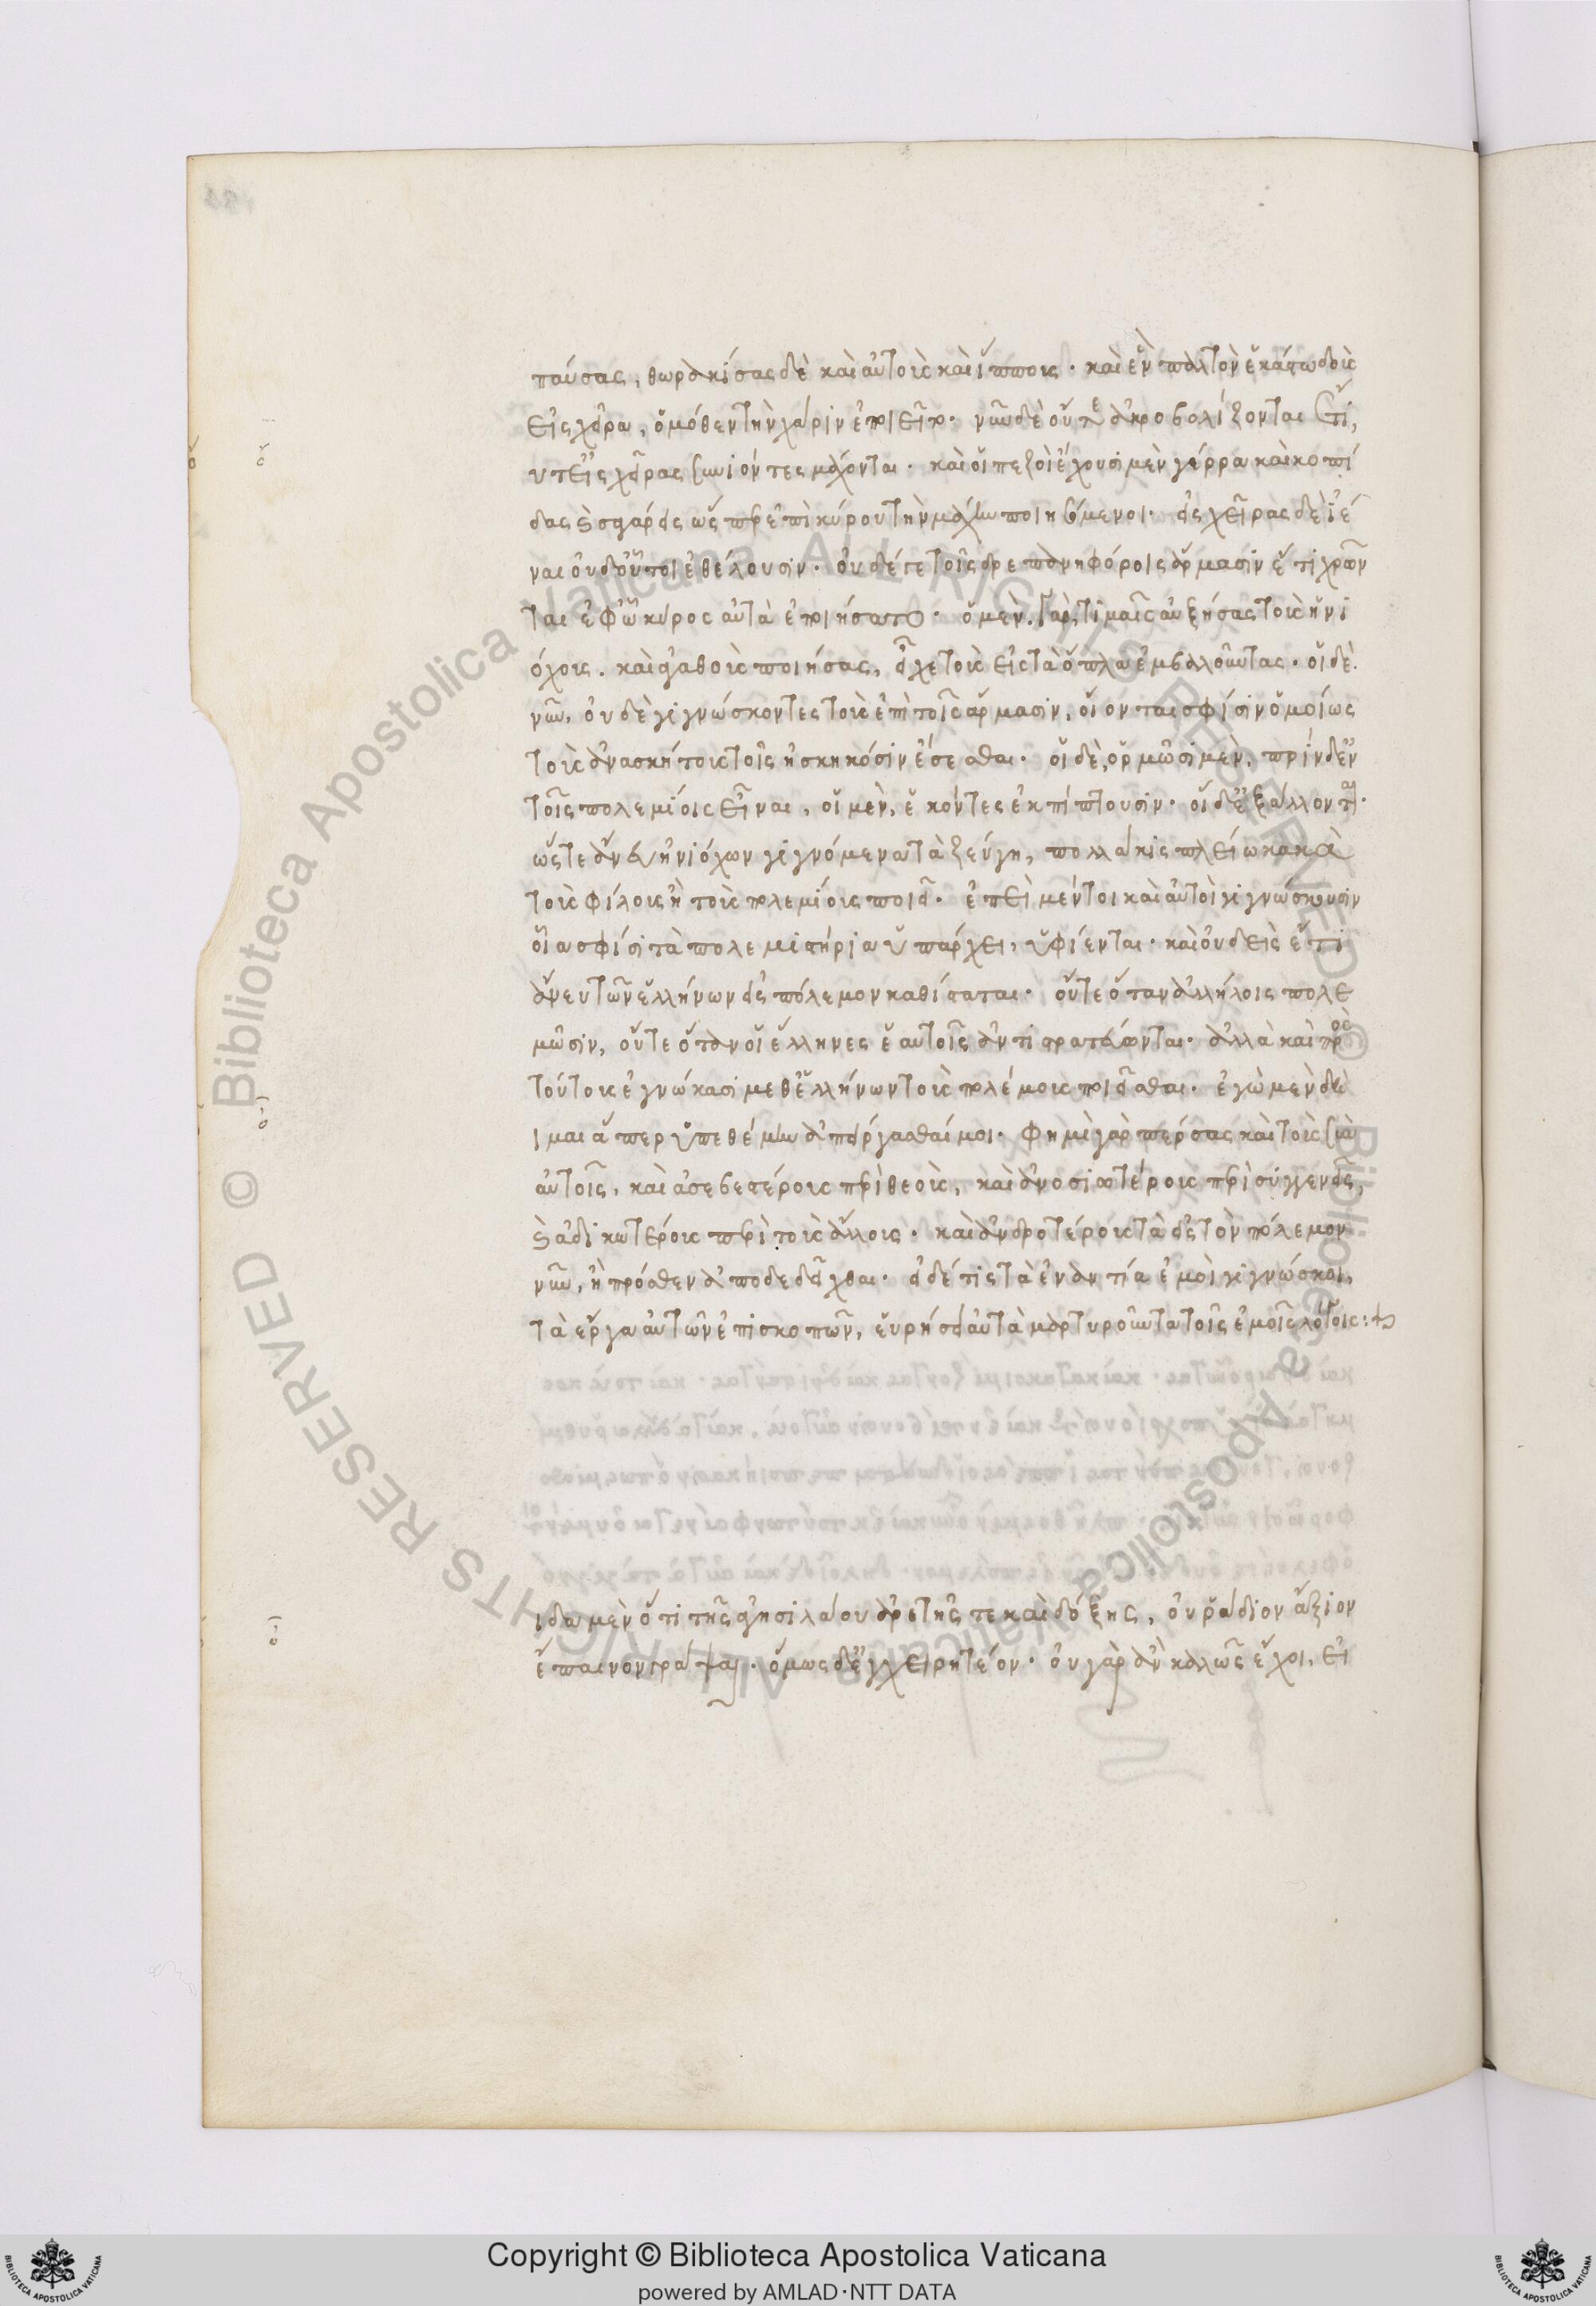 παύσας, θωρακίσας δὲ καὶ αὐτοὺς καὶ ἵππους. καὶ ἓν παλτὸν ἑκάστῳ δοὺς
εἰς χεῖρα, ὁμόθεν τὴν μάχην ἐποιεῖτο. νῦν δὲ οὔτε ἀκροβολίζονται ἔτι,
οὔτ' εἰς χεῖρας συνιόντες μάχονται. καὶ οἱ πεζοὶ ἔχουσι μὲν γέρρα καὶ κοπί
δας καὶ σαγάρεις ὥσπερ ἐπὶ κύρου τὴν μάχην ποιησόμενοι. εἰς χεῖρας δὲ ἰέ
ναι οὐδ' οὗτοι ἐθέλουσιν. οὐδέ γε τοῖς δρεπανηφόροις ἅρμασιν ἔτι χρῶν
ται ἐφ' ᾧ κῦρος αὐτὰ ἐποιήσατο. ὁ μὲν γὰρ, τιμαῖς αὐξήσας τοὺς ἡνι
όχους. καὶ ἀγαθοὺς ποιήσας, εἶχε τοὺς εἰς τὰ ὅπλα ἐμβαλοῦντας. οἱ δὲ
νῦν, οὐδὲ γιγνώσκοντες τοὺς ἐπὶ τοῖς ἅρμασιν, οἴονται σφίσιν ὁμοίως
τοὺς ἀνασκήτους τοῖς ἠσκηκόσιν ἔσεσθαι. οἱ δὲ, ὁρμῶσι μὲν, πρὶν δ' ἐν
τοῖς πολεμίοις εἶναι, οἱ μὲν, ἑκόντες ἐκπίπτουσιν. οἱ δ' ἐξάλλονται.
ὥστε ἄνευ ἡνιόχων γιγνόμενα τὰ ζεύγη, πολλάκις πλείω κακὰ
τοὺς φίλους ἢ τοὺς πολεμίους ποιεῖ. ἐπεὶ μέντοι καὶ αὐτοὶ γιγνώσκουσιν
οἷα σφίσι τὰ πολεμιστήρια ὑπάρχει, ὑφίενται. καὶ οὐδεὶς ἔτι
ἄνευ τῶν ἑλλήνων εἰς πόλεμον καθίσταται. οὔτε ὅταν ἀλλήλοις πολε
μῶσιν, οὔτε ὅταν οἱ ἕλληνες ἑαυτοῖς ἀντιστρατεύωνται. ἀλλὰ καὶ πρὸς
τούτους ἐγνώκασι μεθ' ἑλλήνων τοὺς πολέμους ποιεῖσθαι. ἐγὼ μὲν δὴ
οἶμαι ἅπερ ὑπεθέμην ἀπειργάσθαί μοι. φημὶ γὰρ πέρσας καὶ τοὺς σὺν
αὐτοῖς, καὶ ἀσεβεστέρους περὶ θεοὺς, καὶ ἀνοσιωτέρους περὶ συγγενεῖς,
καὶ ἀδικωτέρους περὶ τοὺς ἄλλους. καὶ ἀνανδροτέρους τὰ εἰς τὸν πόλεμον
νῦν, ἢ πρόσθεν ἀποδεδεῖχθαι. εἰ δέ τις τὰ ἐναντία ἐμοὶ γιγνώσκοι,
τὰ ἔργα αὐτῶν ἐπισκοπῶν, εὑρήσει αὐτὰ μαρτυροῦντα τοῖς ἐμοῖς λόγοις:
ιδα μὲν ὅτι τῆς ἀγησιλάου ἀρετῆς τε καὶ δόξης, οὐ ῥάδιον ἄξιον
ἔπαινον γράψαι. ὅμως δ' ἐγχειρητέον. οὐ γὰρ ἂν καλῶς ἔχοι, εἰ
Copyright © Biblioteca Apostolica Vaticana
powered by AMLAD·NTT DATA